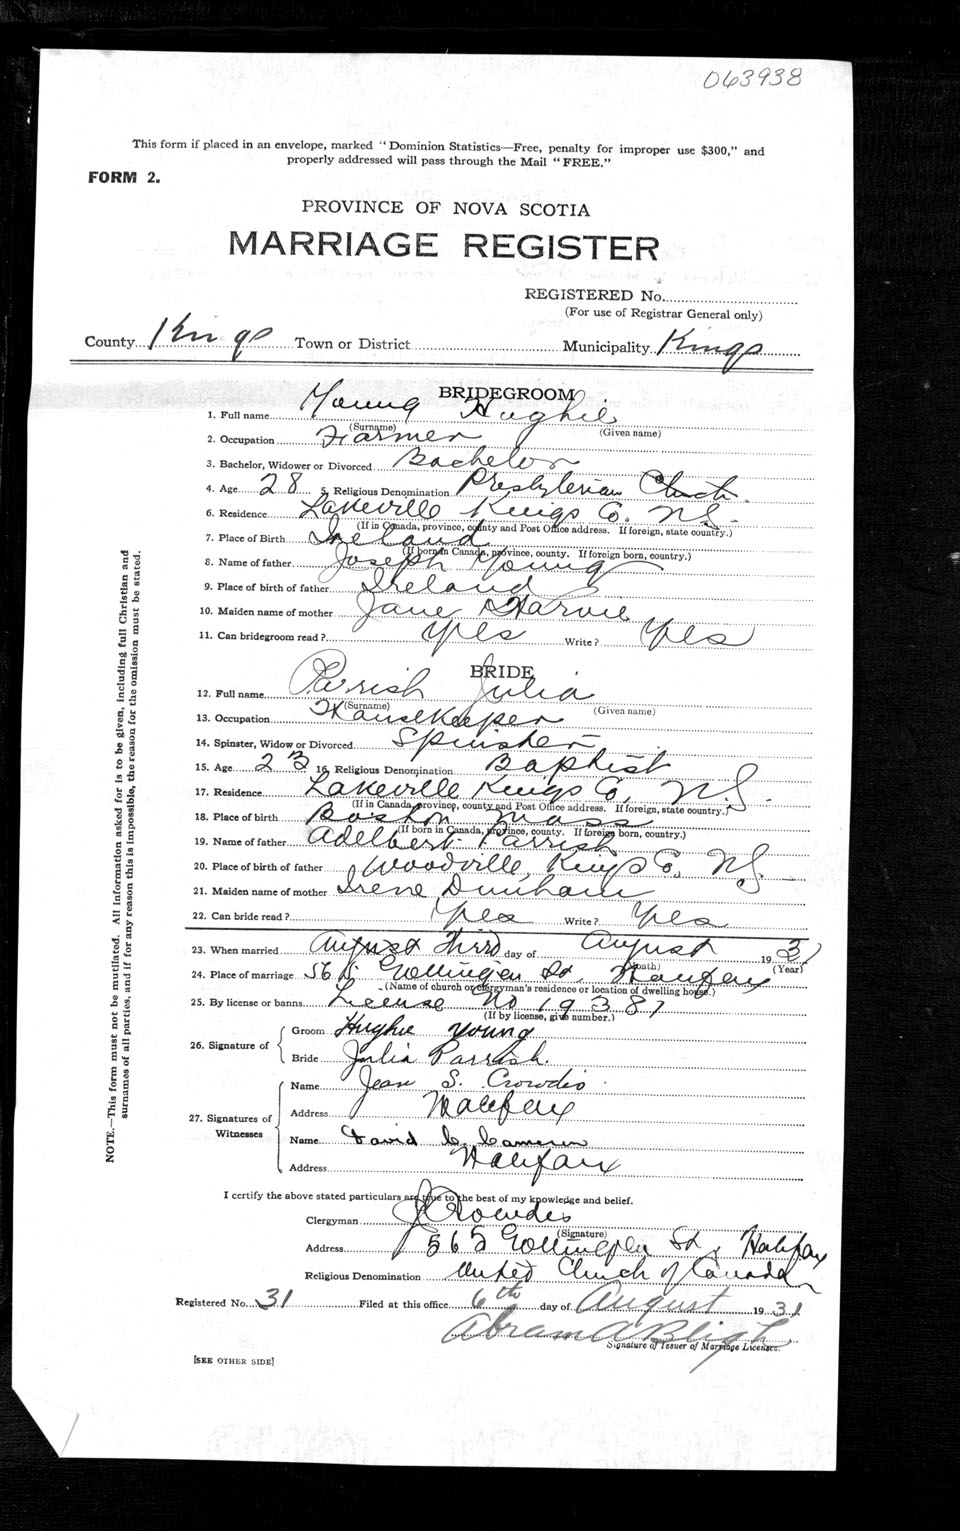 063938
This form if placed in an envelope, marked "Dominion Statistics—Free, penalty for improper use $300," and
properly addressed will pass through the Mail "FREE."
FORM 2.
PROVINCE OF NOVA SCOTIA
MARRIAGE REGISTER
REGISTERED No.
(For use of Registrar General only)
County Kings Town or District Municipality Kings
BRIDEGROOM
1. Full name Young Hughie
(Surname) (Given name)
2. Occupation Farmer
3. Bachelor, Widower or Divorced Bachelor
4. Age 28 5. Religious Denomination Presbyterian Church.
6. Residence Lakeville Kings Co. N.S.
(If in Canada, province, county and Post Office address. If foreign, state country.)
7. Place of Birth Ireland
(If born in Canada, province, county. If foreign born, country.)
8. Name of father Joseph Young
9. Place of birth of father Ireland
10. Maiden name of mother Jane Harvie
11. Can bridegroom read? Yes Write? Yes
BRIDE
12. Full name Parrish Julia
(Surname) (Given name)
13. Occupation Housekeeper
14. Spinster, Widow or Divorced Spinster
15. Age 23 16. Religious Denomination Baptist
17. Residence Lakeville Kings Co, N.S.
(If in Canada, province, county and Post Office address. If foreign, state country.)
18. Place of birth Boston Mass
(If born in Canada, province, county. If foreign born, country.)
19. Name of father Adelbert Parrish
20. Place of birth of father Woodville, Kings Co, N.S.
21. Maiden name of mother Irene Dunham
22. Can bride read? Yes Write? Yes
23. When married August Third day of August 1931
(Month) (Year)
24. Place of marriage 565 St, Halifax
(Name of church or clergyman's residence or location of dwelling house.)
25. By license or banns License No 19387
(If by license, give number.)
26. Signature of
Groom Hughie Young
Bride Julia Parrish.
27. Signatures of Witnesses
Name Jean S. Crowdis
Address Halifax
Name David C. Cameron
Address Halifax
I certify the above stated particulars are true to the best of my knowledge and belief.
Clergyman J Crowdis
(Signature)
Address 565 St, Halifax
Religious Denomination United Church of Canada
Registered No. 31 Filed at this office 6th day of August 1931.
Abram A Bligh
Signature of Issuer of Marriage Licenses.
[SEE OTHER SIDE]
NOTE.—This form must not be mutilated. All information asked for is to be given, including full Christian and
surnames of all parties, and if for any reason this is impossible, the reason for the omission must be stated.